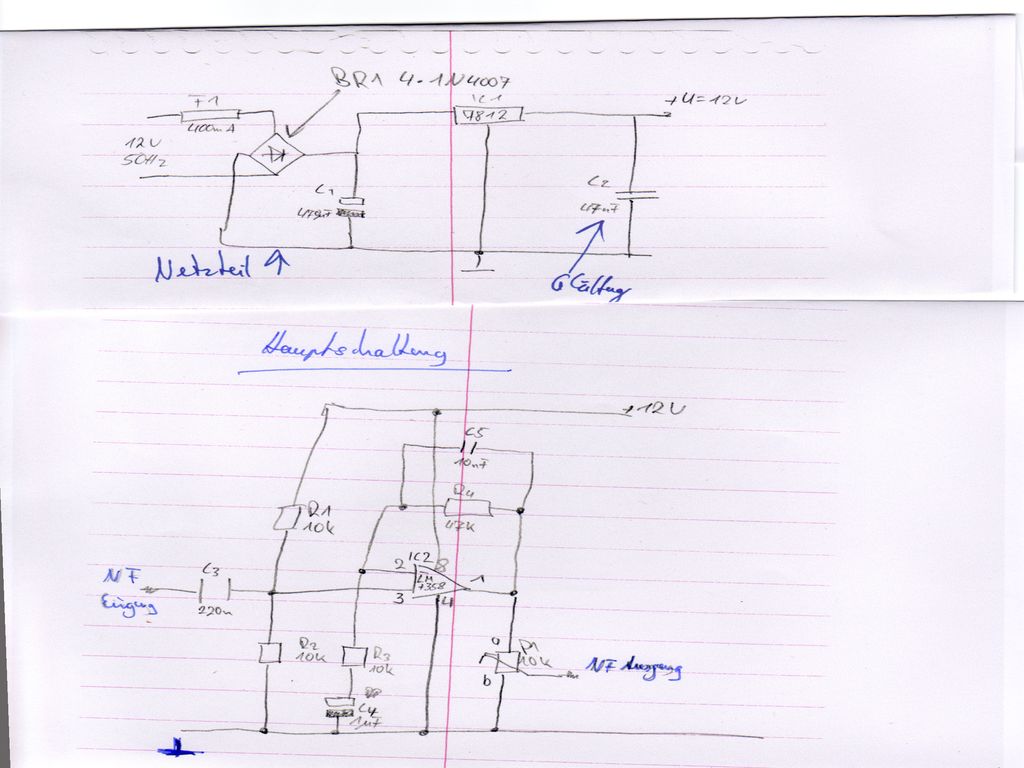 BR1 4·1N4007
F1
400mA
IC1
7812
+U=12V
12V
50Hz
C1
C2
47nF
Netzteil
Glättung
Hauptschaltung
+12V
C5
10nF
R4
47K
R1
10K
IC2
8
2
LM
358
1
3
4
NF
Eingang
C3
220n
R2
10K
R3
10K
a
P1
10K
b
NF Ausgang
C4
1µF